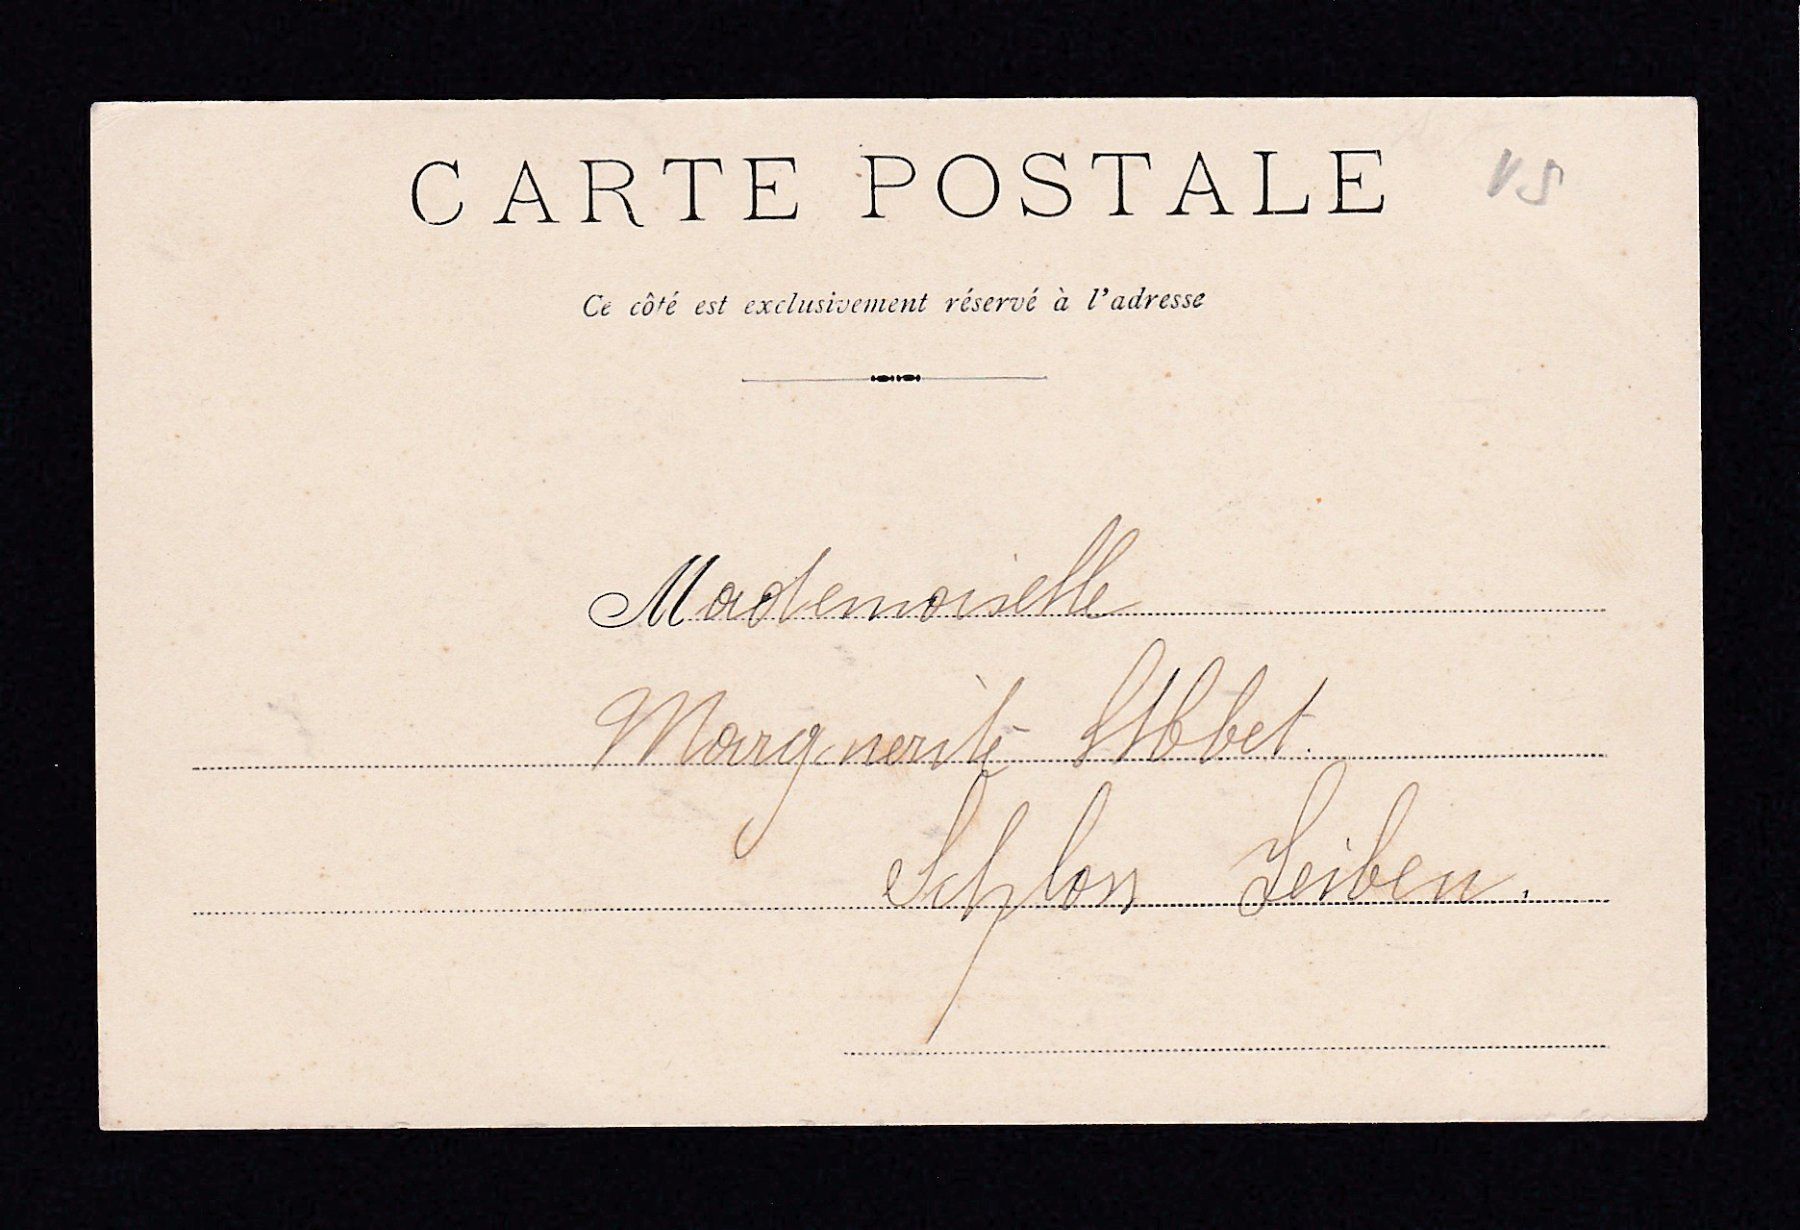 CARTE POSTALE
Ce côté est exclusivement réservé à l'adresse
Mademoiselle
Marguerite
Schloss Leiben.